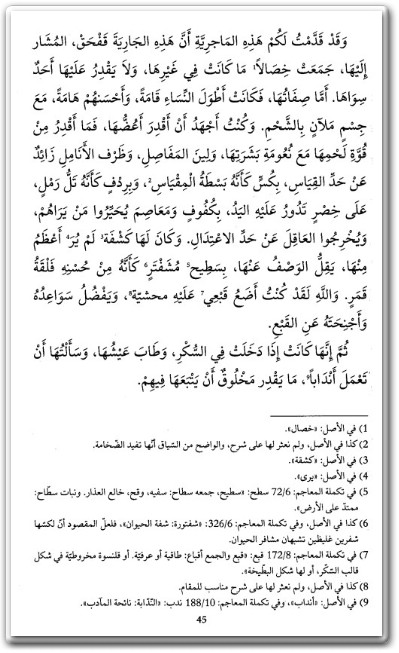 وَقَدْ قَدَّمْتُ لَكُمْ هَذِهِ المَاجريَّةِ أَنَّ هَذِهِ الجَارِيَةَ قَفَحْقَ، المُشَار
إِلَيْهَا، جَمَعَتْ خِصَالاً¹ مَا كَانَتْ فِي غَيْرِهَا، وَلاَ يَقْدِرُ عَلَيْهَا أَحَدٌ
سِوَاهَا. أَمَّا صِفَاتُهَا، فَكَانَتْ أَطْوَلَ النِّسَاءِ قَامَةً، وَأَحْسَنهُمْ هَامَةً، مَعَ
جِسْمٍ مَلآنٍ بِالشَّحْمِ. وَكُنْتُ أَجْهَدُ أَنْ أَقْدَرَ أَعُضُّهَا، فَمَا أَقْدِرُ مِنْ
قُوَّةِ لَحْمِهَا مَعَ نُعُومَةِ بَشَرَتِهَا، وَلِينَ المَفَاصِلِ، وَظَرْفِ الأَنَامِلِ زَائِدٌ
عَنْ حَدِّ القِيَاسِ، بِكُسٍّ كَأَنَّهُ بَسْطَةُ المِقْيَاسِ²، وَبِرِدْفٍ كَأَنَّهُ تَلُّ رَمْلٍ،
عَلَى خِصْرٍ تَدُورُ عَلَيْهِ اليَدُ، بِكُفُوفٍ وَمَعَاصِمَ يُحَيِّرُوا مَنْ يَرَاهُمْ،
وَيُخْرِجُوا العَاقِلَ عَنْ حَدِّ الاعْتِدَالِ. وَكَانَ لَهَا كَشْفَة³ لَمْ يُرَ⁴ أَعْظَمُ
مِنْهَا، يَقِلُّ الوَصْفُ عَنْهَا، بِسَطِيح⁵ مُشَفْتَرٍ⁶ كَأَنَّهُ مِنْ حُسْنِهِ فَلْقَةُ
قَمَرٍ. وَاللَّهِ لَقَدْ كُنْتُ أَضَعُ قَبْعِي⁷ عَلَيْهِ محشيّة⁸، وَيَفْضُلُ سَوَاعِدُهُ
وَأَجْنِحَتَهُ عَنِ القَبْعِ.
ثُمَّ إِنَّهَا كَانَتْ إِذَا دَخَلَتْ فِي السُّكْرِ، وَطَابَ عَيْشُهَا، وَسَأَلْتُهَا أَنْ
تَعْمَلَ أَنْدَاباً⁹، مَا يَقْدِر مَخْلُوقٌ أَنْ يَتْبَعَهَا فِيهِمْ.
1) في الأصل: «خصال».
2) كذا في الأصل، ولم نعثر لها على شرح، والواضح من السّياق أنّها تفيد الضّخامة.
3) في الأصل: «كشفة».
4) في الأصل: «يرى».
5) في تكملة المعاجم: 72/6 سطح: «سطيح، جمعه سطاح: سفيه، وقح، خالع العذار. ونبات سطّاح:
ممتدّ على الأرض».
6) كذا في الأصل، وفي تكملة المعاجم: 326/6: «شفتورة: شفة الحيوان»، فلعلّ المقصود أنّ لكسّها
شفرين غليظين تشبهان مشافر الحيوان.
7) في تكملة المعاجم: 172/8 قبع: «قبع والجمع أقباع: طاقية أو عرقيّة. أو قلنسوة مخروطيّة في شكل
قالب السّكّر، أو لها شكل البطّيخة».
8) كذا في الأصل، ولم نعثر لها على شرح مناسب للمقام.
9) في الأصل: «أنداب»، وفي تكملة المعاجم: 188/10 ندب: «النّدّابة: نائحة المآدب».
45